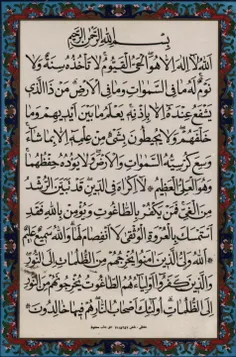 بِسْمِ اللهِ الرَّحْمٰنِ الرَّحِيمِ
اَللهُ لَا اِلٰهَ اِلَّا هُوَ الْحَيُّ الْقَيُّومُ لَا تَأْخُذُهُ سِنَةٌ وَلَا
نَوْمٌ لَهُ مَا فِي السَّمٰوَاتِ وَمَا فِي الْاَرْضِ مَنْ ذَا الَّذِي
يَشْفَعُ عِنْدَهُ اِلَّا بِاِذْنِهِ يَعْلَمُ مَا بَيْنَ اَيْدِيهِمْ وَمَا
خَلْفَهُمْ وَلَا يُحِيطُونَ بِشَيْءٍ مِنْ عِلْمِهِ اِلَّا بِمَا شَاءَ
وَسِعَ كُرْسِيُّهُ السَّمٰوَاتِ وَالْاَرْضَ وَلَا يَؤُدُهُ حِفْظُهُمَا
وَهُوَ الْعَلِيُّ الْعَظِيمُ * لَا اِكْرَاهَ فِي الدِّينِ قَدْ تَبَيَّنَ الرُّشْدُ
مِنَ الْغَيِّ فَمَنْ يَكْفُرْ بِالطَّاغُوتِ وَيُؤْمِنْ بِاللهِ فَقَدِ
اسْتَمْسَكَ بِالْعُرْوَةِ الْوُثْقٰى لَا انْفِصَامَ لَهَا وَاللهُ سَمِيعٌ عَلِيمٌ
* اَللهُ وَلِيُّ الَّذِينَ اٰمَنُوا يُخْرِجُهُمْ مِنَ الظُّلُمَاتِ اِلَى النُّورِ
وَالَّذِينَ كَفَرُوا اَوْلِيَاؤُهُمُ الطَّاغُوتُ يُخْرِجُونَهُمْ مِنَ النُّورِ
اِلَى الظُّلُمَاتِ اُولٰئِكَ اَصْحَابُ النَّارِ هُمْ فِيهَا خَالِدُونَ *